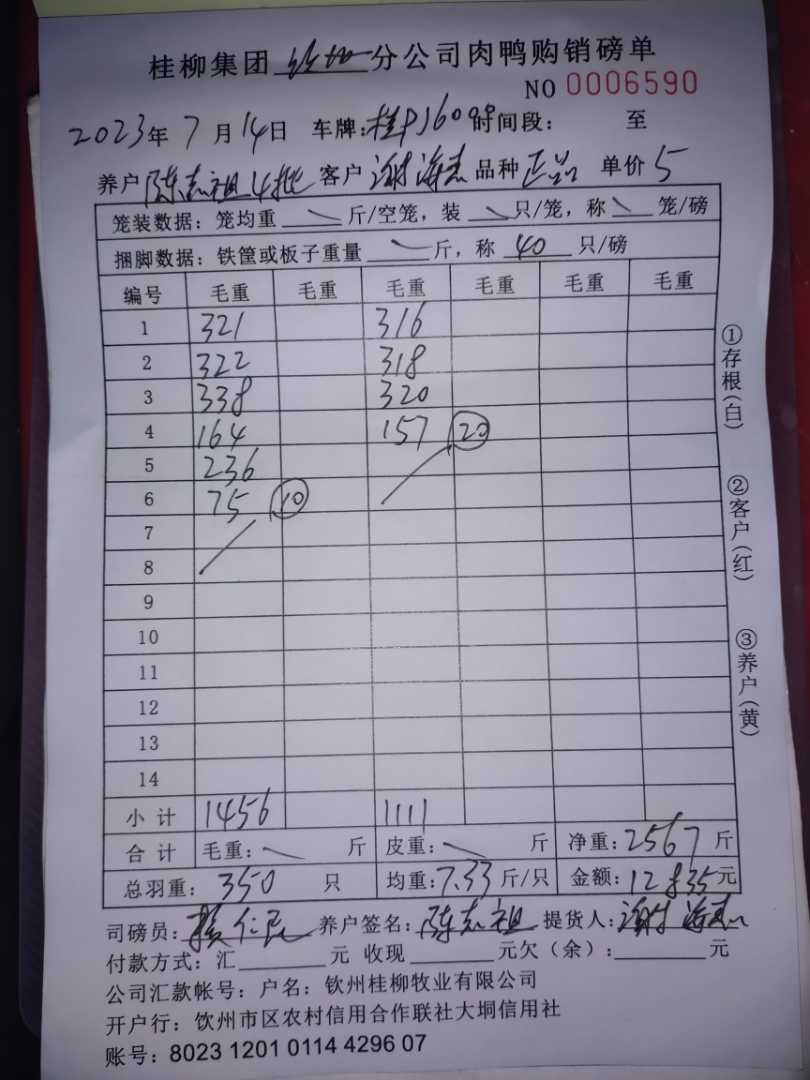 桂柳集团 钦州 分公司肉鸭购销磅单
NO 0006590
2023年 7 月 14日 车牌: 时间段: 至
养户 陈志祖4批 客户 谢海志 品种 正品 单价 5
笼装数据: 笼均重 \ 斤/空笼, 装 \ 只/笼, 称 \ 笼/磅
捆脚数据: 铁筐或板子重量 \ 斤, 称 40 只/磅
编号 毛重 毛重 毛重 毛重 毛重 毛重
1 321 316
2 322 318
3 338 320
4 164 157 20
5 236
6 75 10
7
8
9
10
11
12
13
14
小计 1456 1111
合计 毛重: \ 斤 皮重: \ 斤 净重: 2567 斤
总羽重: 350 只 均重: 7.33 斤/只 金额: 12835元
司磅员: 仁民 养户签名: 陈志祖 提货人: 谢海志
付款方式: 汇 元 收现 元欠(余): 元
公司汇款帐号: 户名: 钦州桂柳牧业有限公司
开户行: 钦州市区农村信用合作联社大垌信用社
账号: 8023 1201 0114 4296 07
①存根(白)
②客户(红)
③养户(黄)